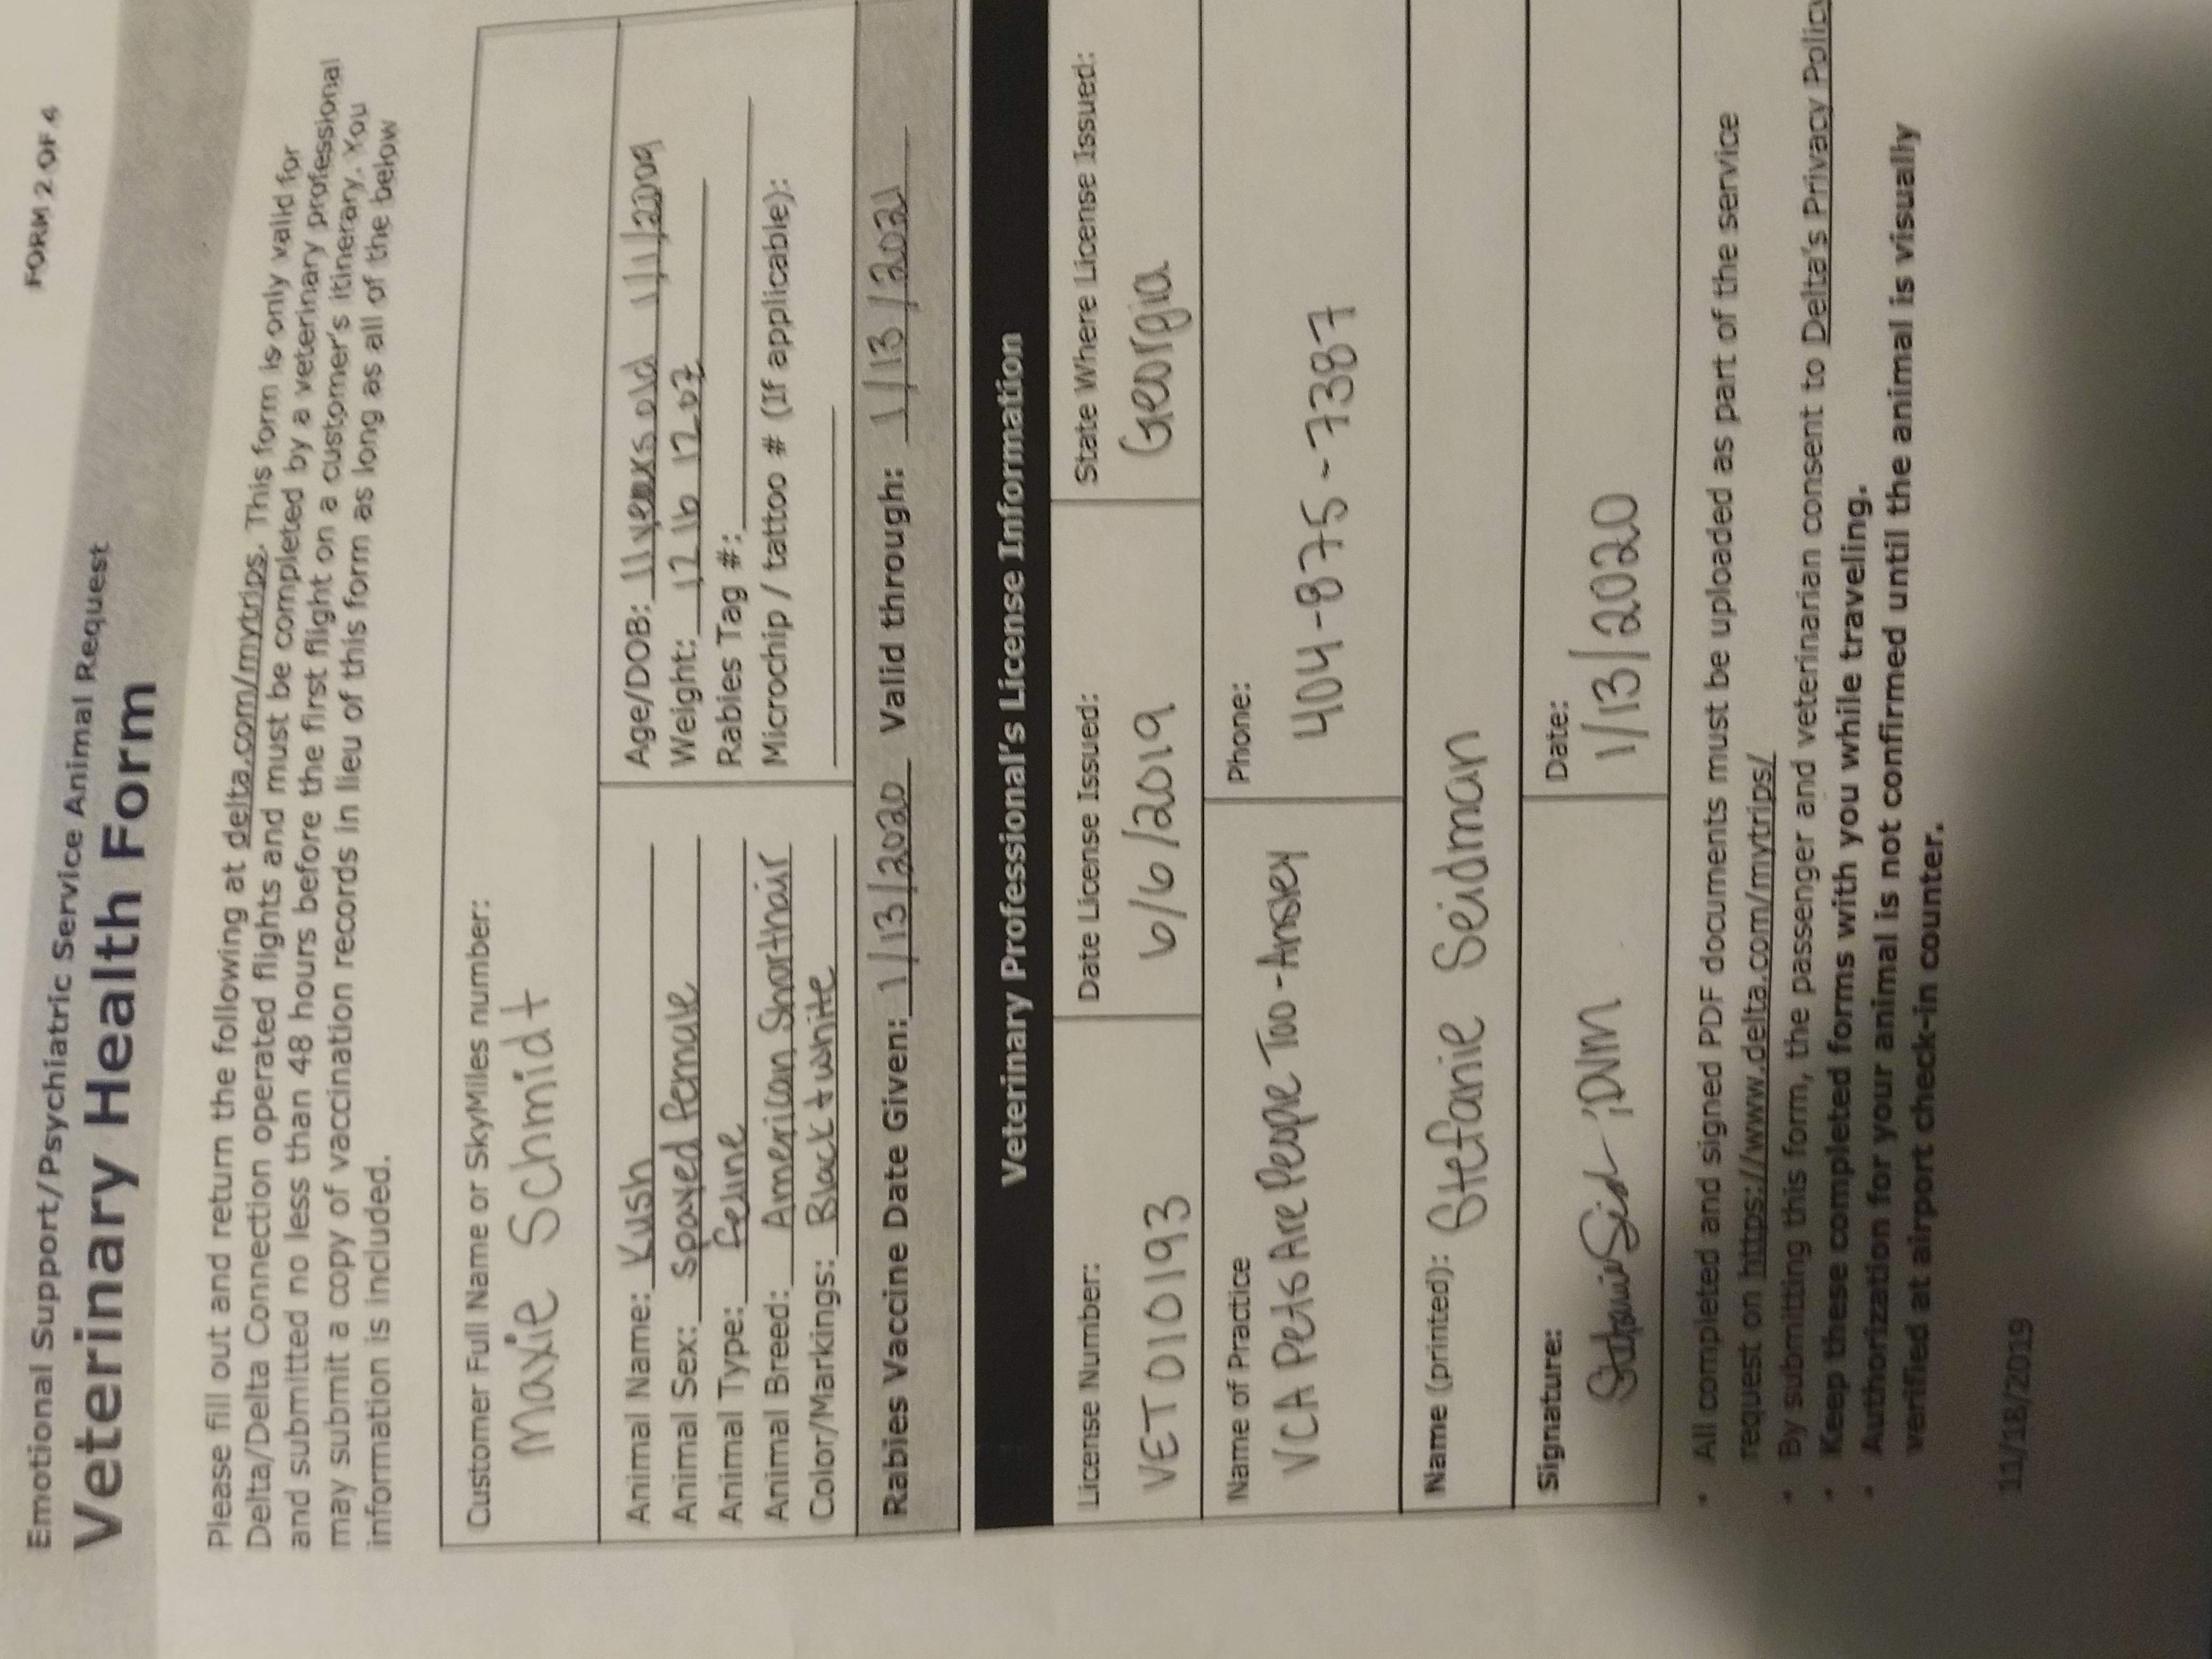 FORM 2 OF 4
Emotional Support/Psychiatric Service Animal Request
Veterinary Health Form
Please fill out and return the following at delta.com/mytrips. This form is only valid for
Delta/Delta Connection operated flights and must be completed by a veterinary professional
and submitted no less than 48 hours before the first flight on a customer's itinerary. You
may submit a copy of vaccination records in lieu of this form as long as all of the below
information is included.
Customer Full Name or SkyMiles number:
Maxie Schmidt
Animal Name: Kush
Animal Sex: spayed female
Animal Type: feline
Animal Breed: American Shorthair
Color/Markings: Black + white
Age/DOB: 11 years old 1/1/2009
Weight: 12 lb 12 oz
Rabies Tag #:
Microchip / tattoo # (If applicable):
Rabies Vaccine Date Given: 1/13/2020 Valid through: 1/13/2021
Veterinary Professional's License Information
License Number:
VET010193
Date License Issued:
6/6/2019
State Where License Issued:
Georgia
Name of Practice
VCA Pets Are People Too - Ansley
Phone:
404-875-7387
Name (printed): Stefanie Seidman
Signature:
Stefanie Seid ;DVM
Date:
1/13/2020
• All completed and signed PDF documents must be uploaded as part of the service
request on https://www.delta.com/mytrips/
• By submitting this form, the passenger and veterinarian consent to Delta's Privacy Policy
• Keep these completed forms with you while traveling.
• Authorization for your animal is not confirmed until the animal is visually
verified at airport check-in counter.
11/18/2019